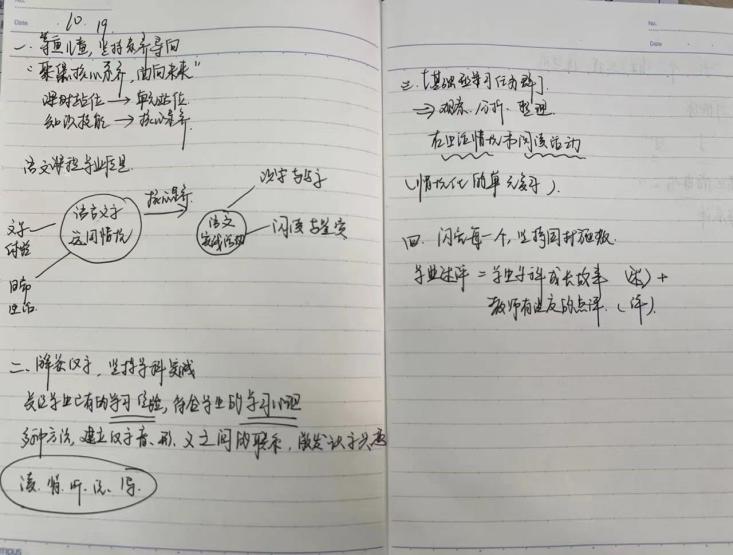 No.
Date
10. 19
一、尊重儿童,坚持素养导向
"聚焦核心素养,面向未来"
课时站位 → 单元站位
知识技能 → 核心素养
语文课程学业质量
语言文字
运用情境
文学
体验
日常
生活
核心素养
语文
实践活动
识字与写字
阅读与鉴赏
二、解码汉字,坚持学科实践
关注学生已有的学习经验,符合学生的学习心理
多种方法,建立汉字音、形、义之间的联系,激发识字兴趣
读、背、听、说、写
mpus
No.
Date
三、[基础型学习任务群]
⇒ 观察、分析、整理
在生活情境和阅读活动
(情境化的单元学习)
四、闪光每一个,坚持因材施教
学业述评 = 学生学科成长故事 (述) +
教师有温度的点评 (评)